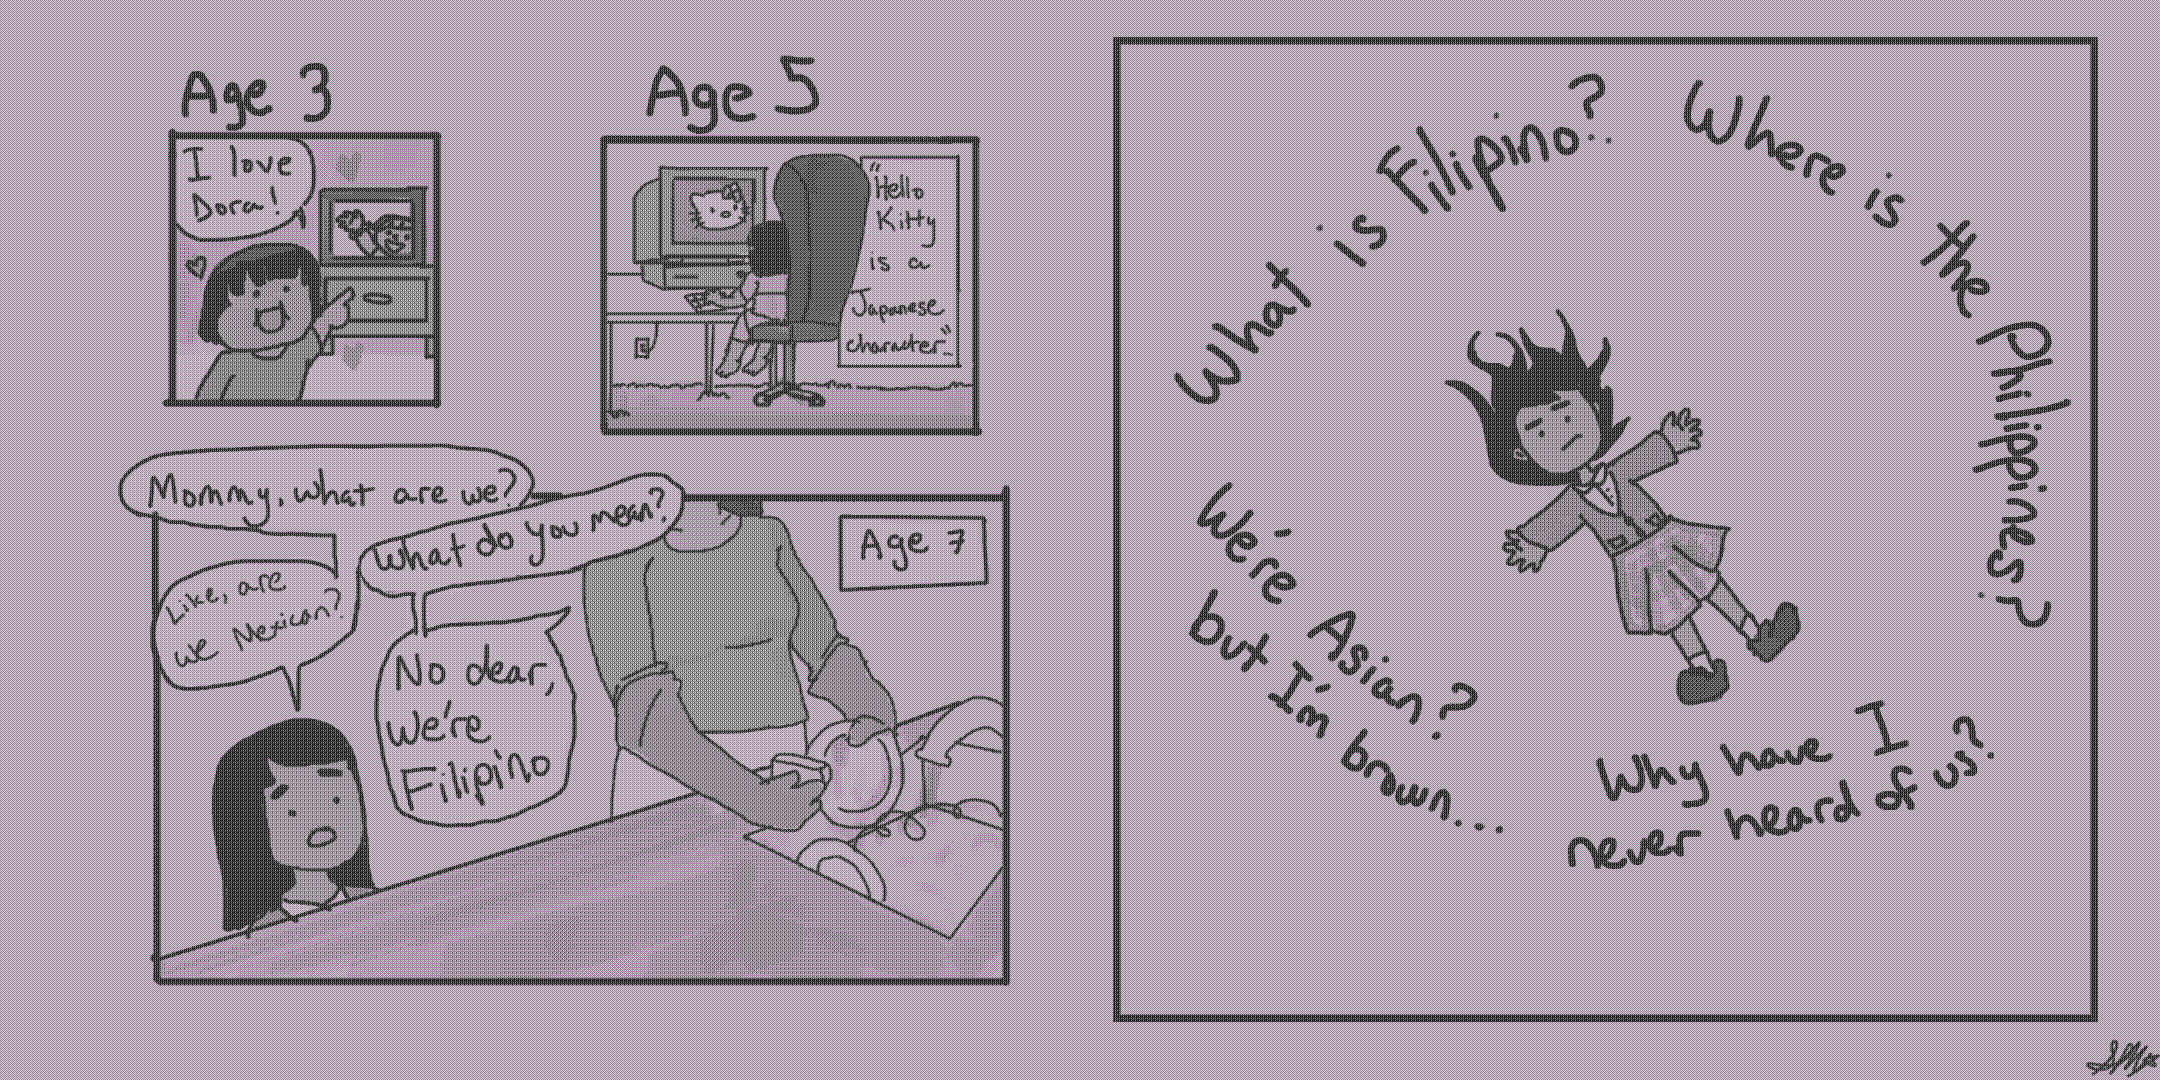 Age 3
I love
Dora!
Age 5
"Hello
Kitty
is a
Japanese
character..."
Mommy, what are we?
What do you mean?
Age 7
Like, are
we Mexican?
No dear,
We're
Filipino
What is Filipino?
Where is the Philippines?
We're Asian?
but I'm brown...
Why have I
never heard of us?